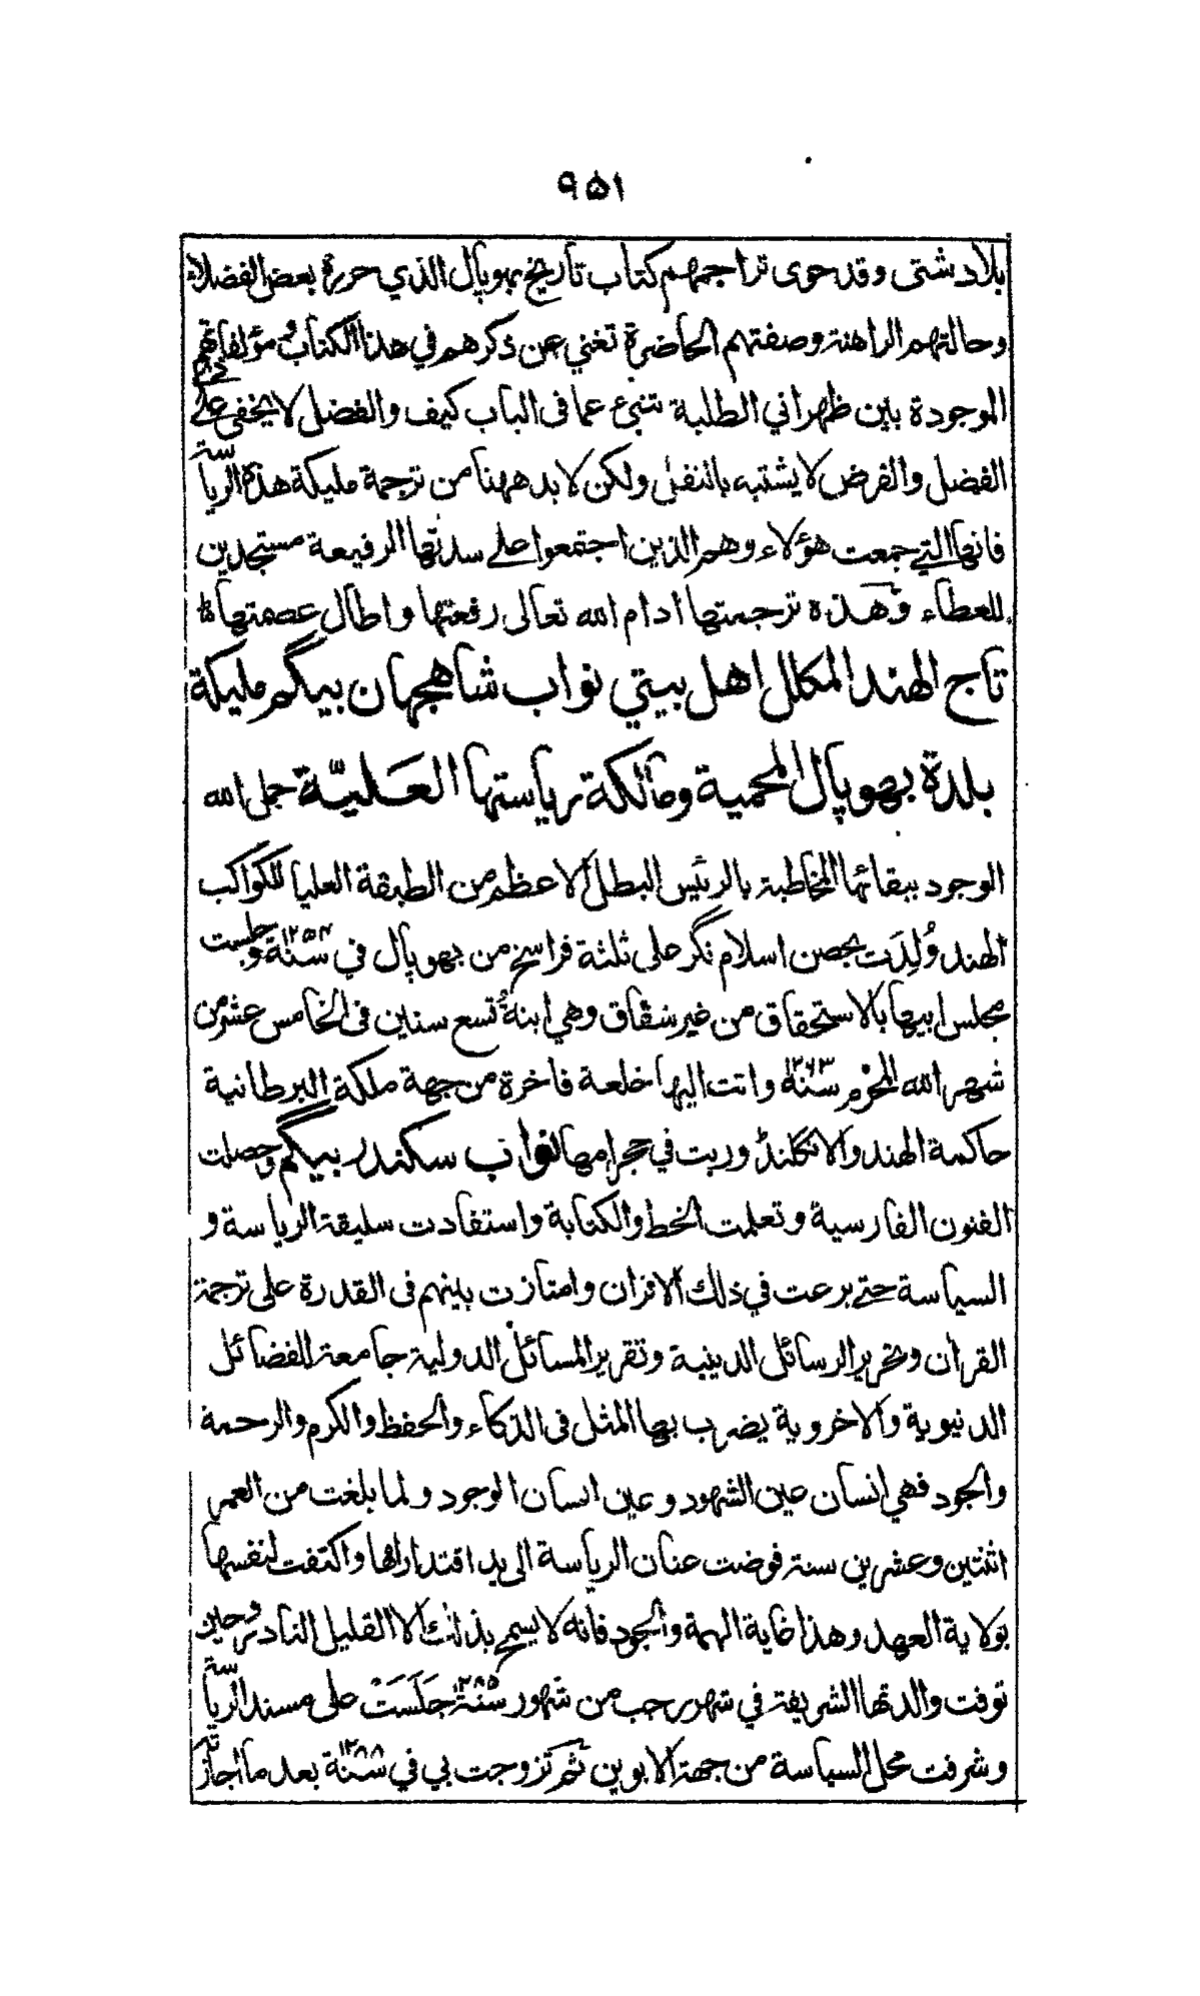 ٩٥١
بلاد شتى وقد حوى تراجمهم كتاب تاريخ بهوپال الذي حرره بعض الفضلاء
وحالتهم الراهنة وصفتهم الحاضرة تغني عن ذكرهم في هذا الكتاب ومؤلفاتهم
الموجودة بين ظهراني الطلبة تنبئ عما فى الباب كيف والفضل لا يخفى على ذي
الفضل والفرض لا يشتبه بالنفل ولكن لا بد ههنا من ترجمة مليكة هذه الرياسة
فانها التي جمعت هؤلاء وهم الذين اجتمعوا على سدتها الرفيعة مستجدين
للعطاء وهذه ترجمتها ادام الله تعالى رفعتها واطال عصمتها
تاج الهند المكلل اهل بيتي نواب شاهجهان بيگم مليكة
بلدة بهوپال المحمية ومالكة رياستها العَليّة جمل الله
الوجود ببقائها المخاطبة بالرئيس البطل الاعظم من الطبقة العليا لكواكب
الهند وُلِدَت بحصن اسلام نگر على ثلثة فراسخ من بهوپال في سنة ١٢٥٤ وجلست
مجلس ابيها بالاستحقاق من غير شقاق وهي ابنةُ تسع سنين فى الخامس عشر من
شهر الله المحرم سنة ١٢٦٣ واتت اليها خلعة فاخرة من جهة ملكة البرطانية
حاكمة الهند والانكلنڈ وربت في حجر امها نواب سكندر بيگم وحصلت
الفنون الفارسية وتعلمت الخط والكتابة واستفادت سليقة الرياسة و
السياسة حتى برعت في ذلك الاقران وامتازت بينهم فى القدرة على ترجمة
القران وتحرير الرسائل الدينية وتقرير المسائل الدولية جامعة للفضائل
الدنيوية والاخروية يضرب بها المثل فى الذكاء والحفظ والكرم والرحمة
والجود فهي انسان عين الشهود وعين انسان الوجود ولما بلغت من العمر
اثنتين وعشرين سنة فوضت عنان الرياسة الى يد اقتدار امها واكتفت لنفسها
بولاية العهد وهذا غاية الهمة والجود فانه لا يسمح بذلك الا القليل النادر وحين
توفت والدتها الشريفة في شهر رجب من شهور سنة ١٢٨٥ جَلَسَتْ على مسند الرياسة
وشرفت محل السياسة من جهة الابوين ثم تزوجت بي في سنة ١٢٨٨ بعد ما اجازته